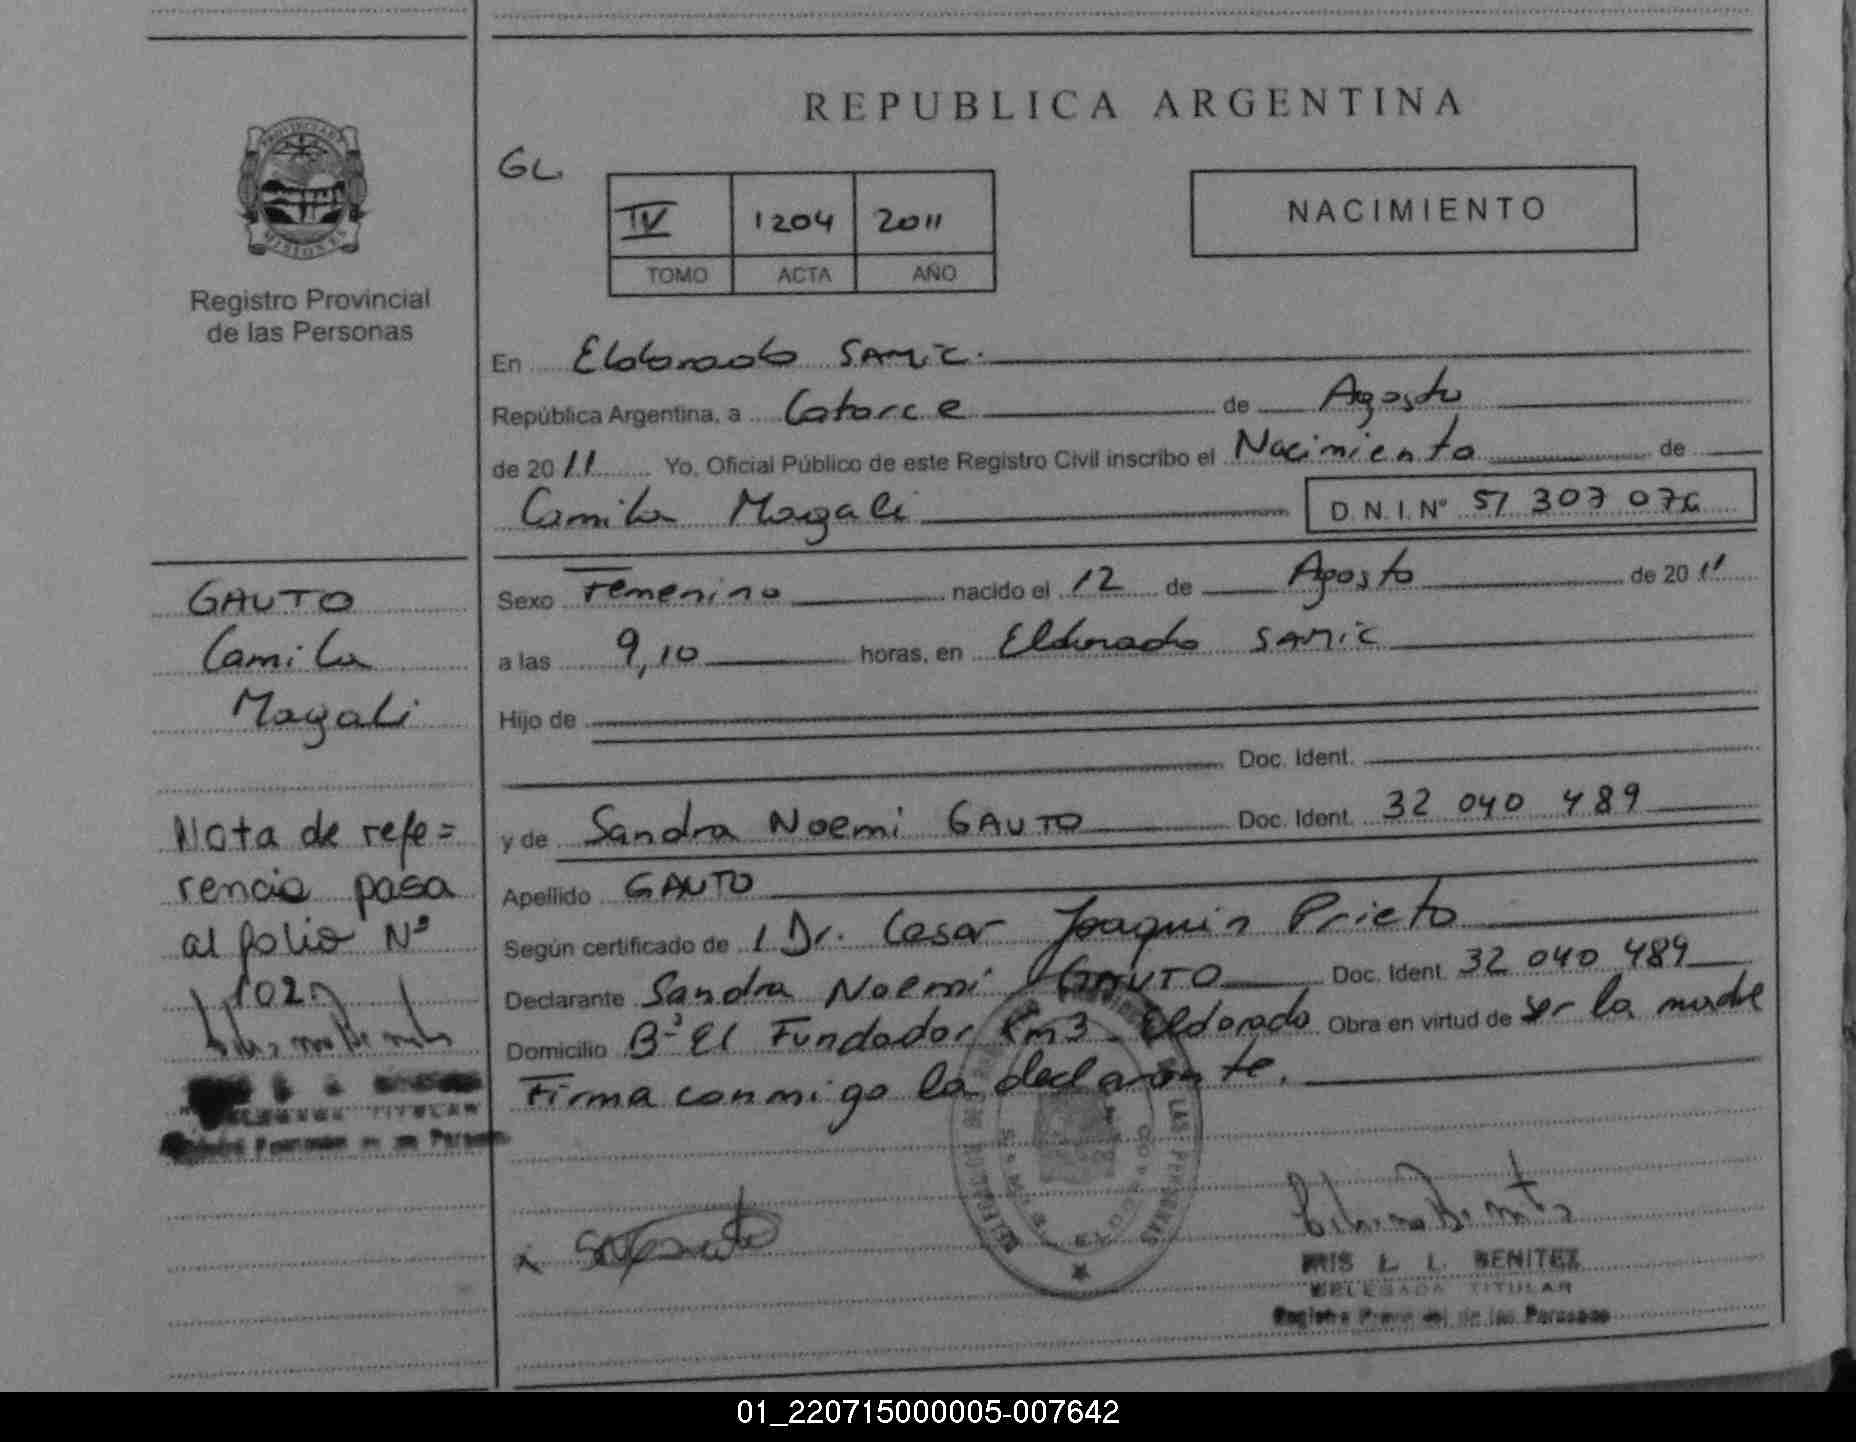 REPUBLICA ARGENTINA
GL
IV 1204 2011
TOMO ACTA AÑO
NACIMIENTO
PROVINCIA DE MISIONES
Registro Provincial
de las Personas
En Eldorado SAMIC.
República Argentina, a Catorce de Agosto
de 2011 Yo, Oficial Público de este Registro Civil inscribo el Nacimiento de
Camila Magali D.N.I. Nº 51 307 076
GAUTO
Camila
Magali
Sexo Femenino nacido el 12 de Agosto de 2011
a las 9,10 horas, en Eldorado SAMIC
Hijo de
Doc. Ident.
y de Sandra Noemi GAUTO Doc. Ident. 32 040 489
Apellido GAUTO
Según certificado de Dr. Cesar Joaquin Prieto
Declarante Sandra Noemi GAUTO Doc. Ident. 32 040 489
Domicilio Bº El Fundador Km3 Eldorado Obra en virtud de ser la madre
Firma conmigo la declarante.
Nota de refe=
rencia pasa
al folio Nº
102
DELEGADA TITULAR
LAS PERSONAS
IRIS L. L. BENITEZ
DELEGADA TITULAR
Registro Provincial de las Personas
01_220715000005-007642